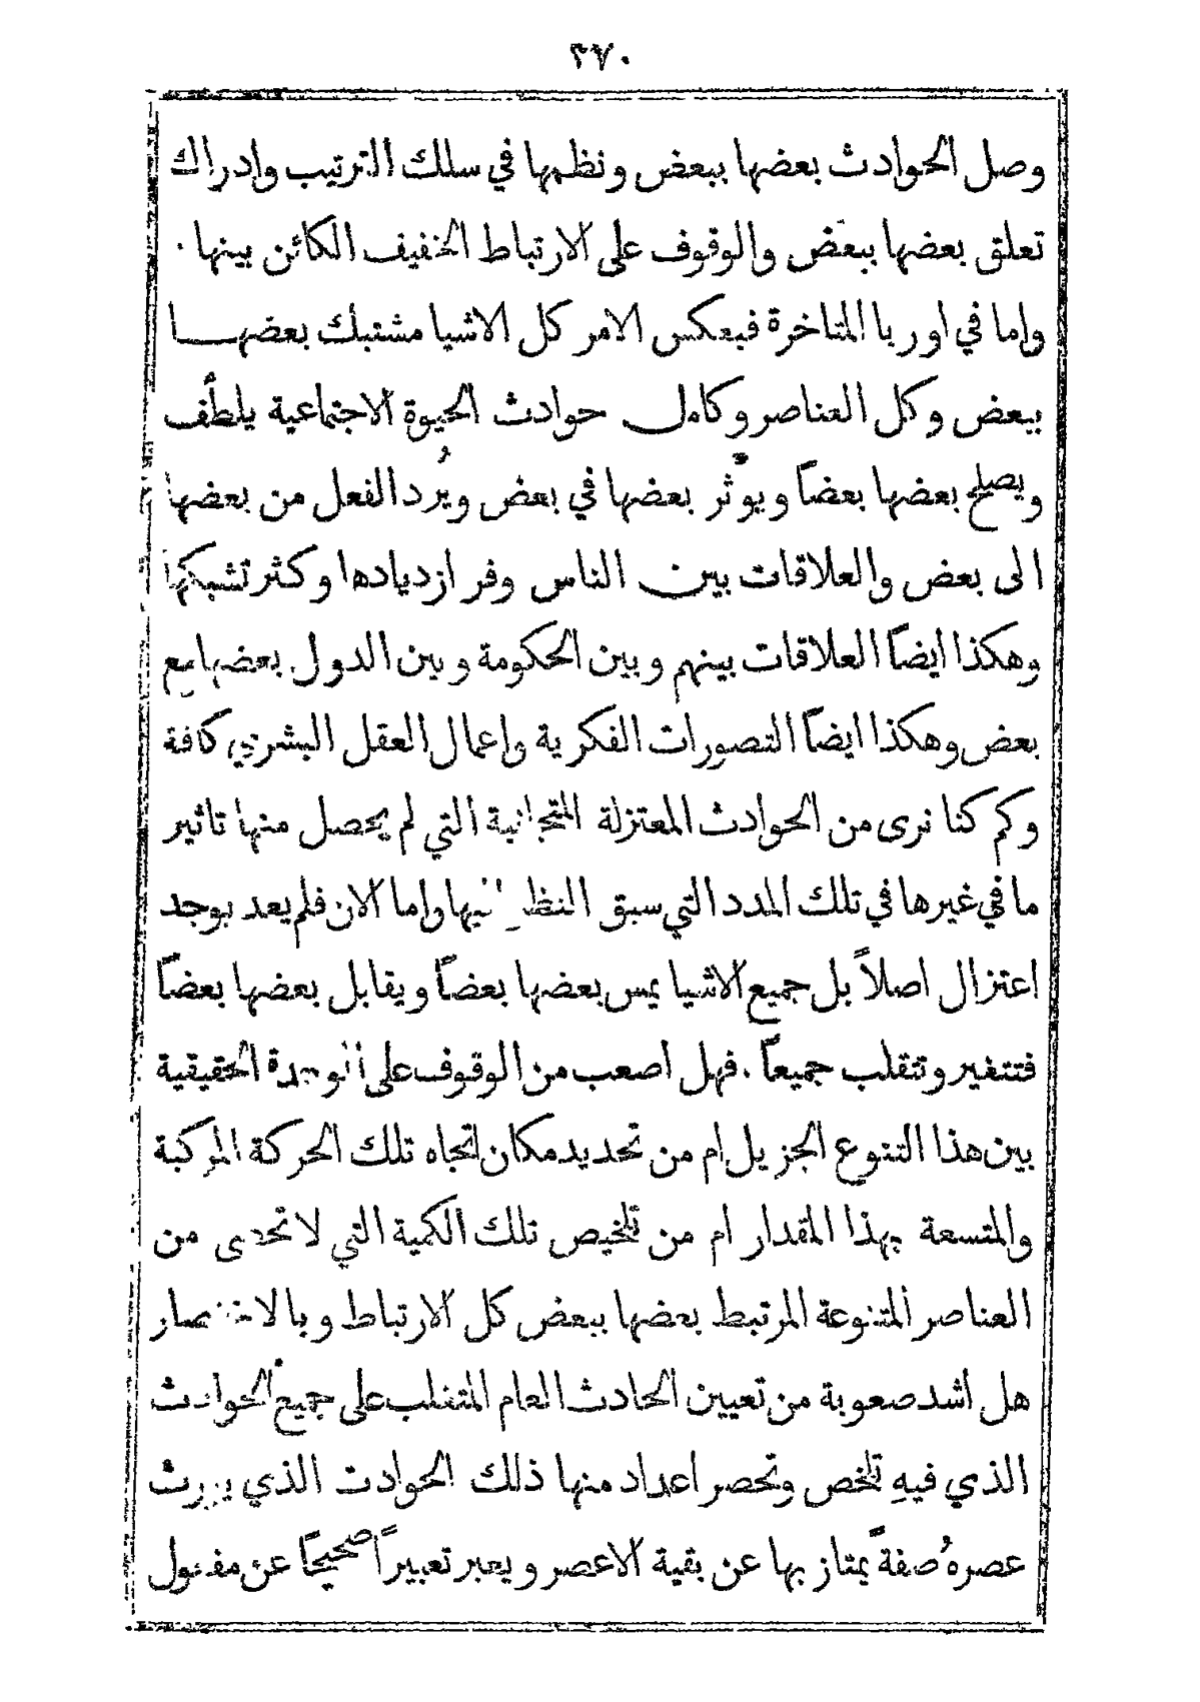 ٣٧٠
وصل الحوادث بعضها ببعض ونظمها في سلك الترتيب وادراك
تعلق بعضها ببعض والوقوف على الارتباط الخفيف الكائن بينها .
واما في اوربا المتاخرة فبعكس الامر كل الاشيا مشتبك بعضها
ببعض وكل العناصر وكامل حوادث الحيوة الاجتماعية يلطّف
ويصلح بعضها بعضاً ويوثّر بعضها في بعض ويُرد الفعل من بعضها
الى بعض والعلاقات بين الناس وفر ازديادها وكثر تشبكها
وهكذا ايضاً العلاقات بينهم وبين الحكومة وبين الدول بعضها مع
بعض وهكذا ايضاً التصورات الفكرية واعمال العقل البشري كافة
وكم كنا نرى من الحوادث المعتزلة التي لم يحصل منها تاثير
ما في غيرها في تلك المدد التي سبق النظر فيها واما الان فلم يعد يوجد
اعتزال اصلاً بل جميع الاشيا يمس بعضها بعضاً ويقابل بعضها بعضاً
فتتغير وتتقلب جميعاً . فهل اصعب من الوقوف على الوحدة الحقيقية
بين هذا التنوع الجزيل ام من تحديد مكان اتجاه تلك الحركة المركبة
والمتسعة بهذا المقدار ام من تلخيص تلك الكمية التي لا تحصى من
العناصر المتنوعة المرتبط بعضها ببعض كل الارتباط وبالاختصار
هل اشد صعوبة من تعيين الحادث العام المتغلب على جميع الحوادث
الذي فيهِ تلخص وتحصر اعداد منها ذلك الحوادث الذي يورث
عصرهُ صفةً يمتاز بها عن بقية الاعصر ويعبر تعبيراً صحيحاً عن مفعول